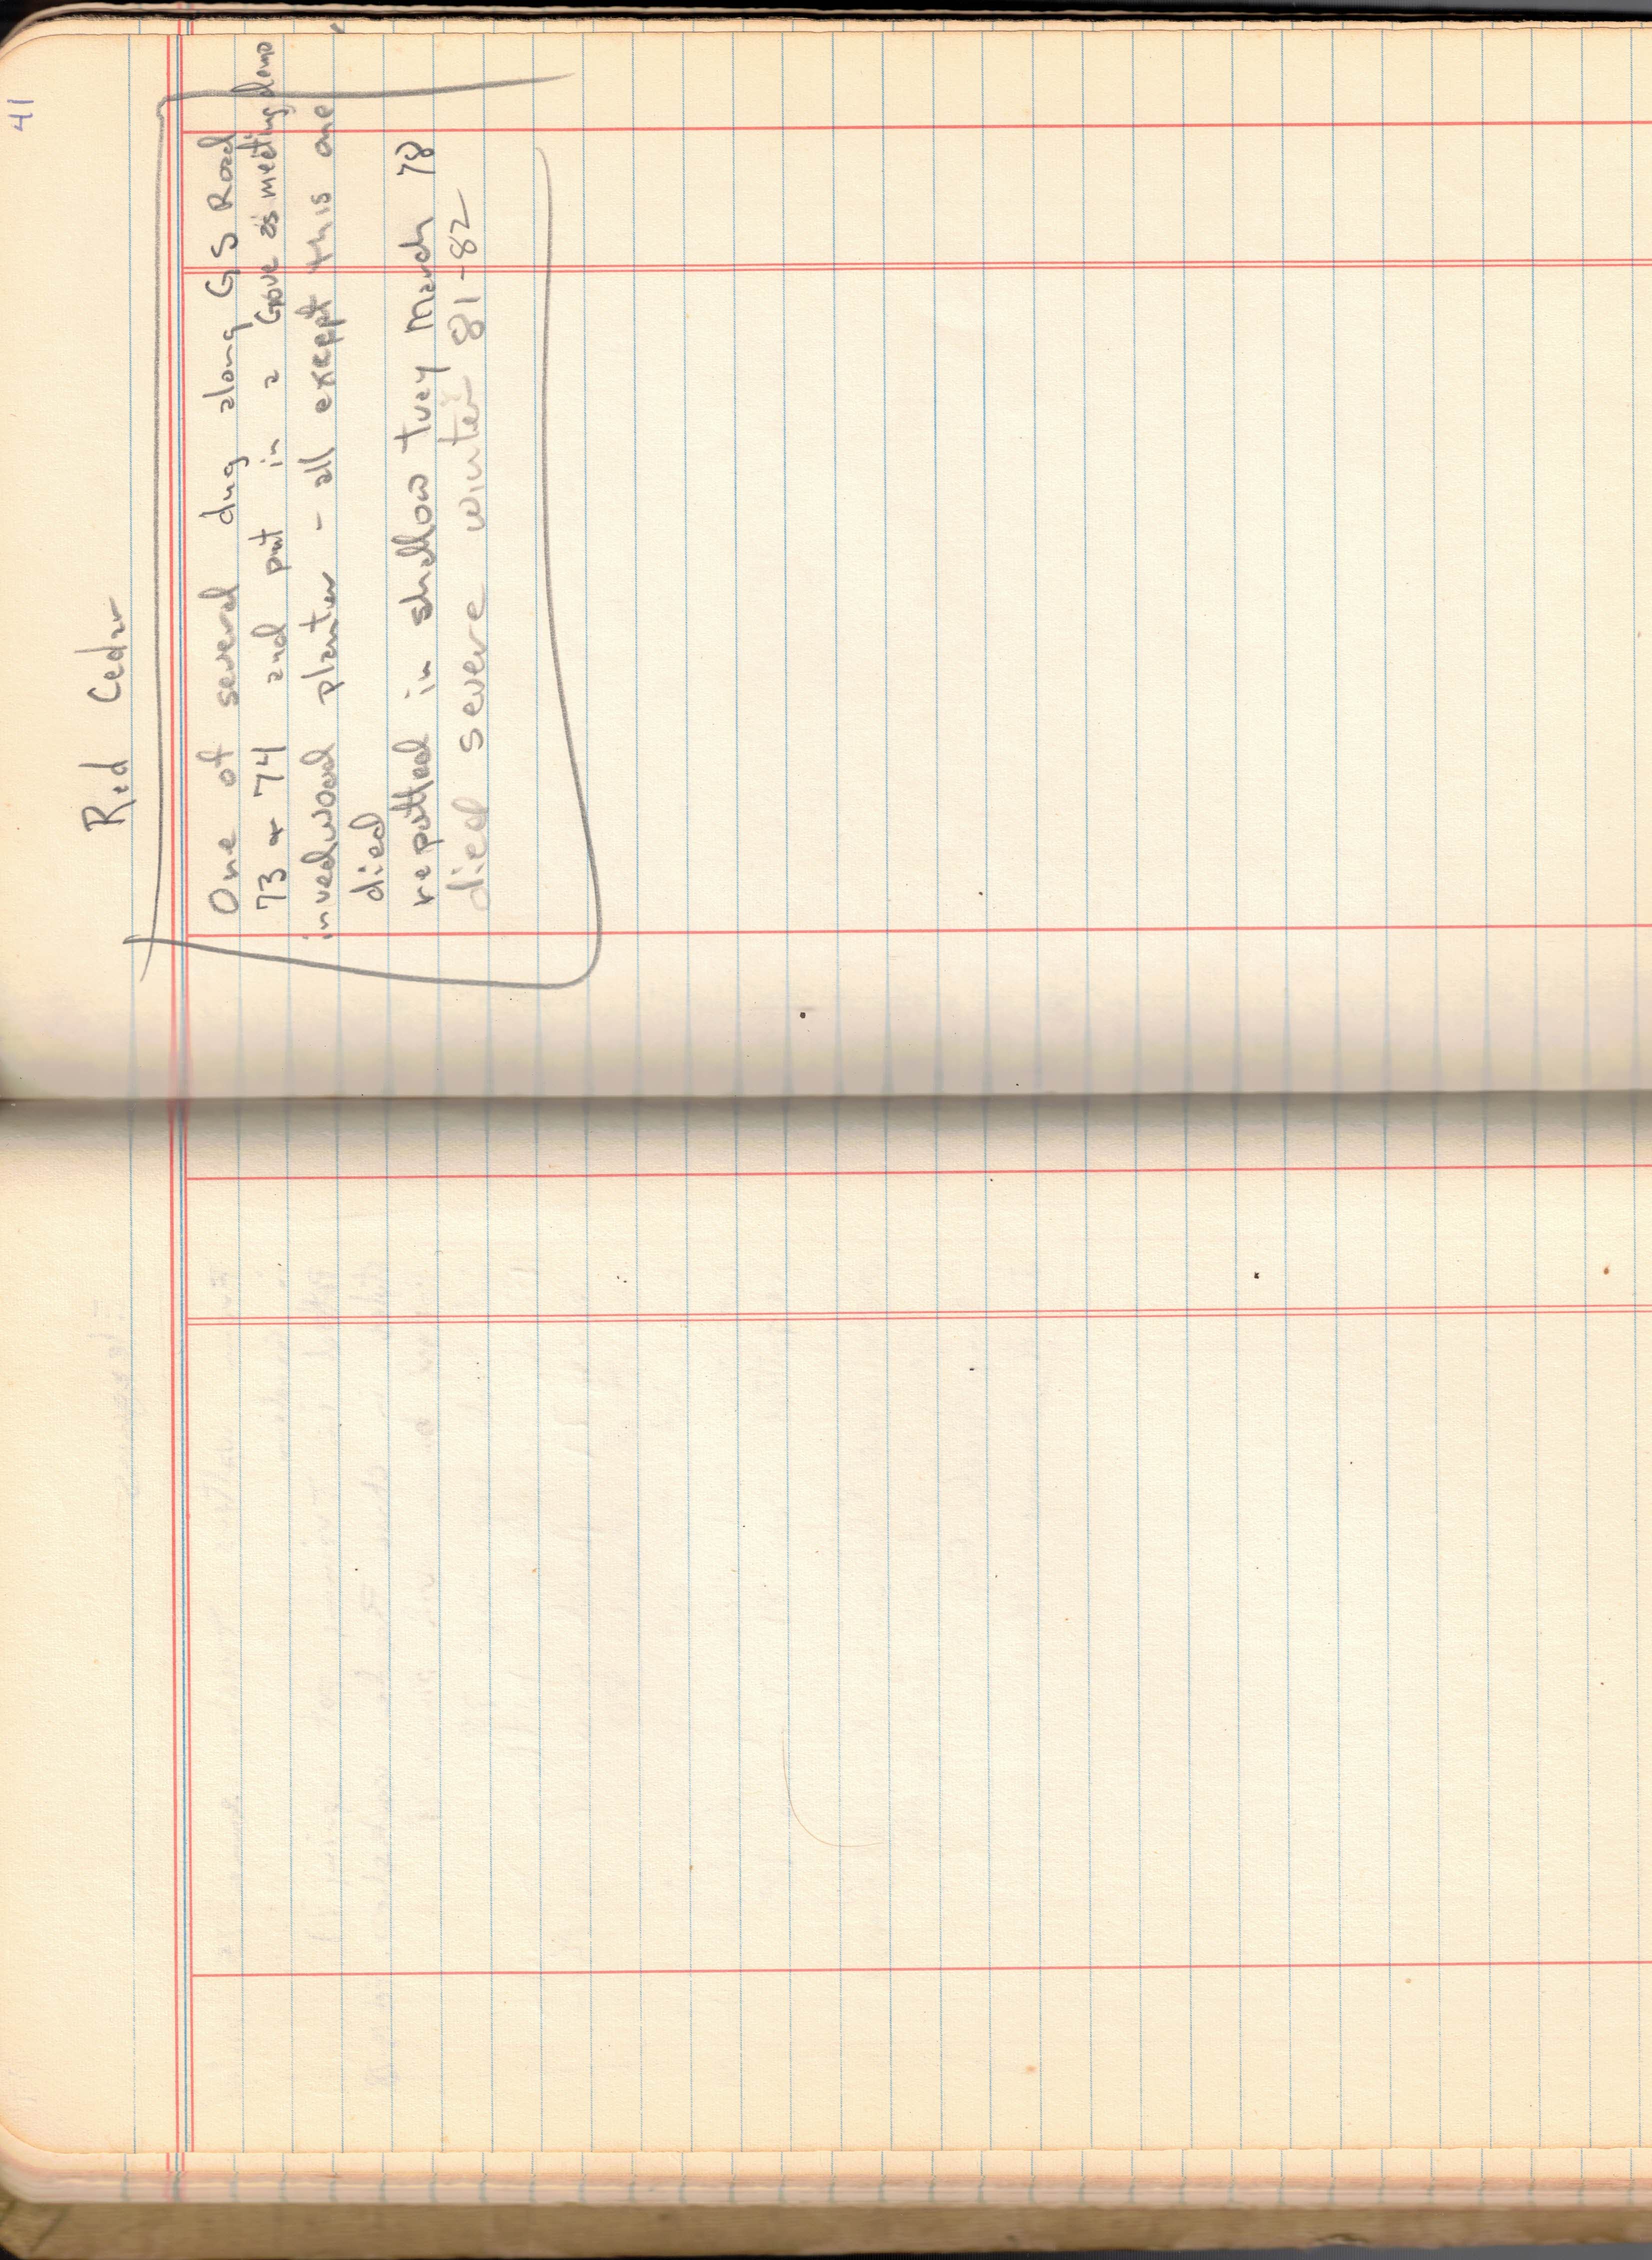 41
Red Cedar
One of several dug along G S Road
73 & 74 and put in a Grove as meeting demo
in redwood planter - all except this one
died
repotted in shallow tray March 78
died severe winter 81-82